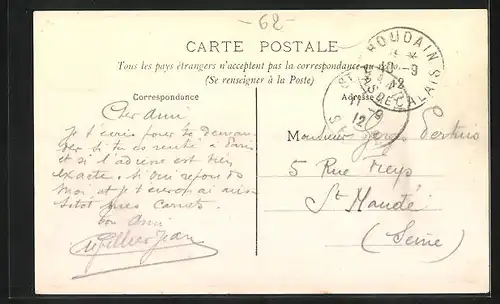 -62-
CARTE POSTALE
Tous les pays étrangers n'acceptent pas la correspondance au
(Se renseigner à la Poste)
Correspondance
Cher Ami
Je t'écris pour te deman
der si tu es rentré à Paris
et si l'adresse est bien
exacte. Si oui reponds
moi et je t'enverrai aus
sitot mes carnets.
ton Ami
Jean
Adresse
Monsieur
5 Rue
St Mandé
(Seine)
HOUDAIN
10-9
12
PAS DE CALAIS
11-9
12